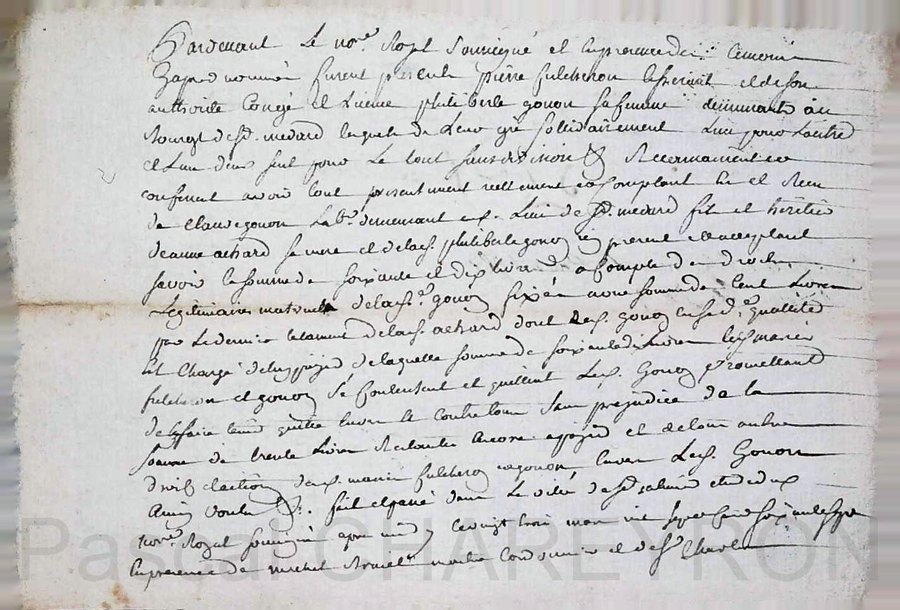 Pardevant Le nore Royal Soussigné et en presence des temoins
bas nommés furent presents pierre fulcheron et de son
authorité Congé et Licence philiberte gonon sa femme demeurants au
bourg de st. medard lesquels de Leur gré solidairement L'un pour L'autre
et L'un d'eux seul pour Le tout sans division &
confessent avoir tout presentement reellement et Comptant eu et Receu
de Claude gonon demeurant de st. medard fils et heritier
de anne achard sa mere et de lad. philiberte gonon present et acceptant
savoir la somme de soixante et dix livres a Compte des droits
Legitimaires maternels de lad. gonon fixés a une somme de Cent Livres
par Le dernier testament de lad. achard dont Led. gonon en sad. qualité
est Chargé de laquelle somme de soixante dix Livres lesd. mariés
fulcheron et gonon se Contentent et quittent Led. Gonon promettant
de l'en faire tenir quitte envers et Contre tous sans prejudice de la
somme de trente Livres Restante encore et de tous autres
droits et actions desd. mariés fulcheron et gonon envers Led. Gonon
Ainsi voulu &. fait et passé dans La ville de st galmier etude dud.
nore. Royal soussigné apres midy Ce vingt trois mars mil sept Cent soixante
En presence de michel maitre Cordonnier et de sr Charles
Pascal CHAREYRON